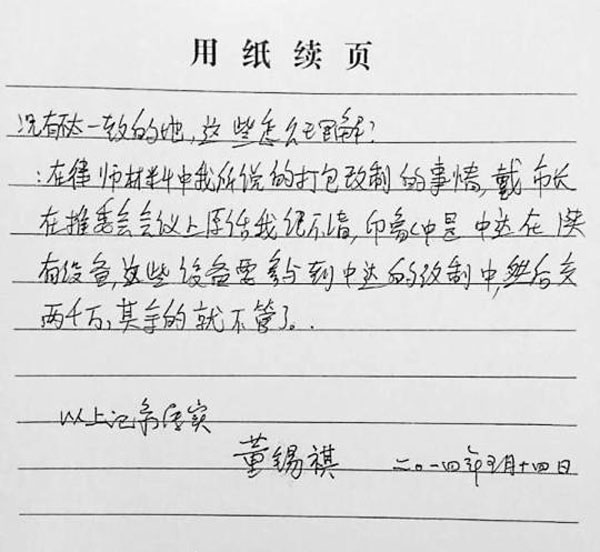 用纸续页
况有不太一致的地,这些怎么理解?
:在律师材料中我所说的打包改制的事情,戴市长
在推委会会议上原话我记不清,印象中是中达在陕
有设备,这些设备要参与到中达的改制中,然后交
两千万,其余的就不管了。
以上记录属实
董锡祺 二〇一四年五月十四日